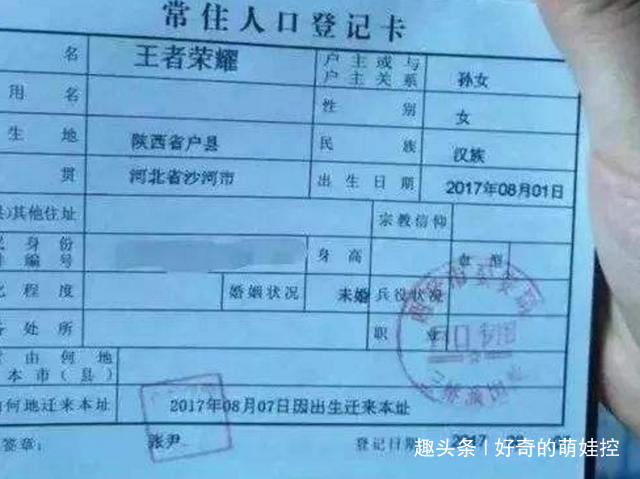 常住人口登记卡
名 王者荣耀 户主或与户主关系 孙女
用名 性别 女
生地 陕西省户县 民族 汉族
贯 河北省沙河市 出生日期 2017年08月01日
其他住址 宗教信仰
身份
编号 身高 血型
程度 婚姻状况 未婚 兵役状况
处所 职业
由何地
本市(县)
何地迁来本址 2017年08月07日因出生迁来本址
签章: 张尹 登记日期: 2017
趣头条 | 好奇的萌娃控